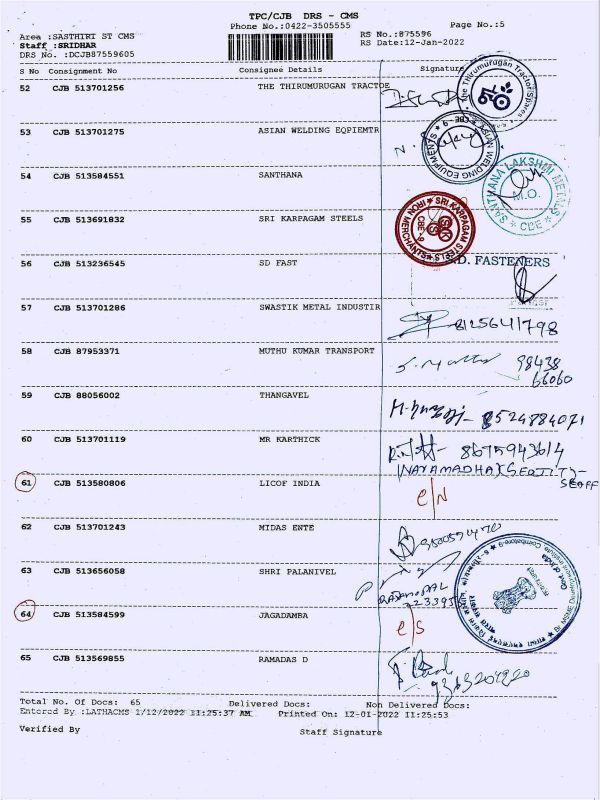 TPC/CJB DRS - CMS
Phone No.:0422-3505555
Page No.:5
Area :SASTHIRI ST CMS
RS No.:875596
Staff :SRIDHAR
RS Date:12-Jan-2022
DRS No. :DCJB87559605
S No Consignment No Consignee Details Signature
52 CJB 513701256 THE THIRUMURUGAN TRACTOE
The Thirumurugan Tractor Spares
53 CJB 513701275 ASIAN WELDING EQPIEMTR
ASIAN WELDING EQUIPMENTS CBE - 9
54 CJB 513584551 SANTHANA
SANTHANA LAKSHMI METALS M.O. CBE
55 CJB 513691832 SRI KARPAGAM STEELS
SRI KARPAGAM STEELS IRON MERCHANTS CBE - 9 SKS
56 CJB 513236545 SD FAST
.D. FASTENERS
57 CJB 513701286 SWASTIK METAL INDUSTIR
8125641798
58 CJB 87953371 MUTHU KUMAR TRANSPORT
98438
66060
59 CJB 88056002 THANGAVEL
8524884071
60 CJB 513701119 MR KARTHICK
8675943614
61 CJB 513580806 LICOF INDIA
C/N
62 CJB 513701243 MIDAS ENTE
63 CJB 513656058 SHRI PALANIVEL
64 CJB 513584599 JAGADAMBA
C/S
65 CJB 513569855 RAMADAS D
Total No. Of Docs: 65 Delivered Docs: Non Delivered Docs:
Entered By :LATHACMS 1/12/2022 11:25:37 AM Printed On: 12-01-2022 11:25:53
Verified By Staff Signature